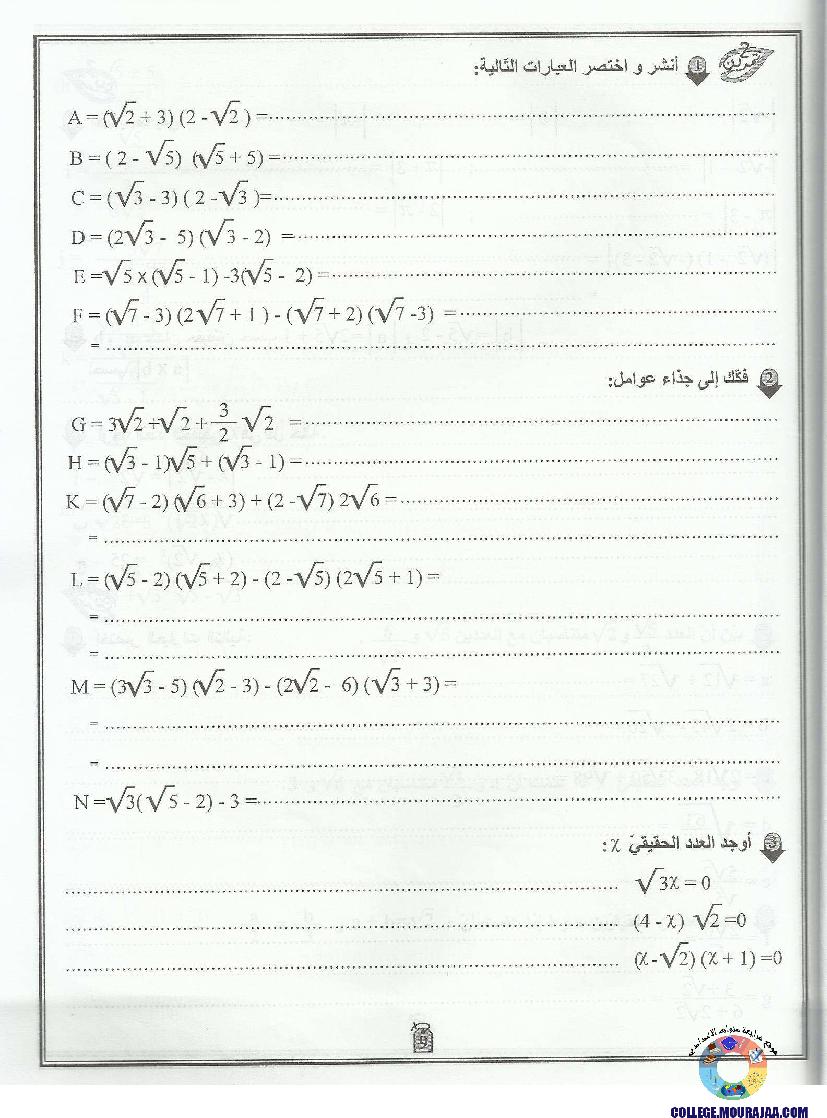 تمرين 2
1 أنشر و اختصر العبارات التالية:
A = (√2 + 3) (2 - √2 ) =
B = ( 2 - √5) (√5 + 5) =
C = (√3 - 3) ( 2 -√3 )=
D = (2√3 - 5) (√3 - 2) =
E =√5 x (√5 - 1) -3(√5 - 2) =
F = (√7 - 3) (2√7 + 1 ) - (√7 + 2) (√7 -3) =
=
2 فكّك إلى جذاء عوامل:
G = 3√2 +√2 + 3/2 √2 =
H = (√3 - 1)√5 + (√3 - 1) =
K = (√7 - 2) (√6 + 3) + (2 -√7) 2√6 =
=
L = (√5 - 2) (√5 + 2) - (2 -√5) (2√5 + 1) =
=
=
M = (3√3 - 5) (√2 - 3) - (2√2 - 6) (√3 + 3) =
=
=
N =√3( √5 - 2) - 3 =
3 أوجد العدد الحقيقيّ x :
√3x = 0
(4 - x) √2 =0
(x -√2) (x + 1) =0
9
موقع مراجعة
COLLEGE.MOURAJAA.COM